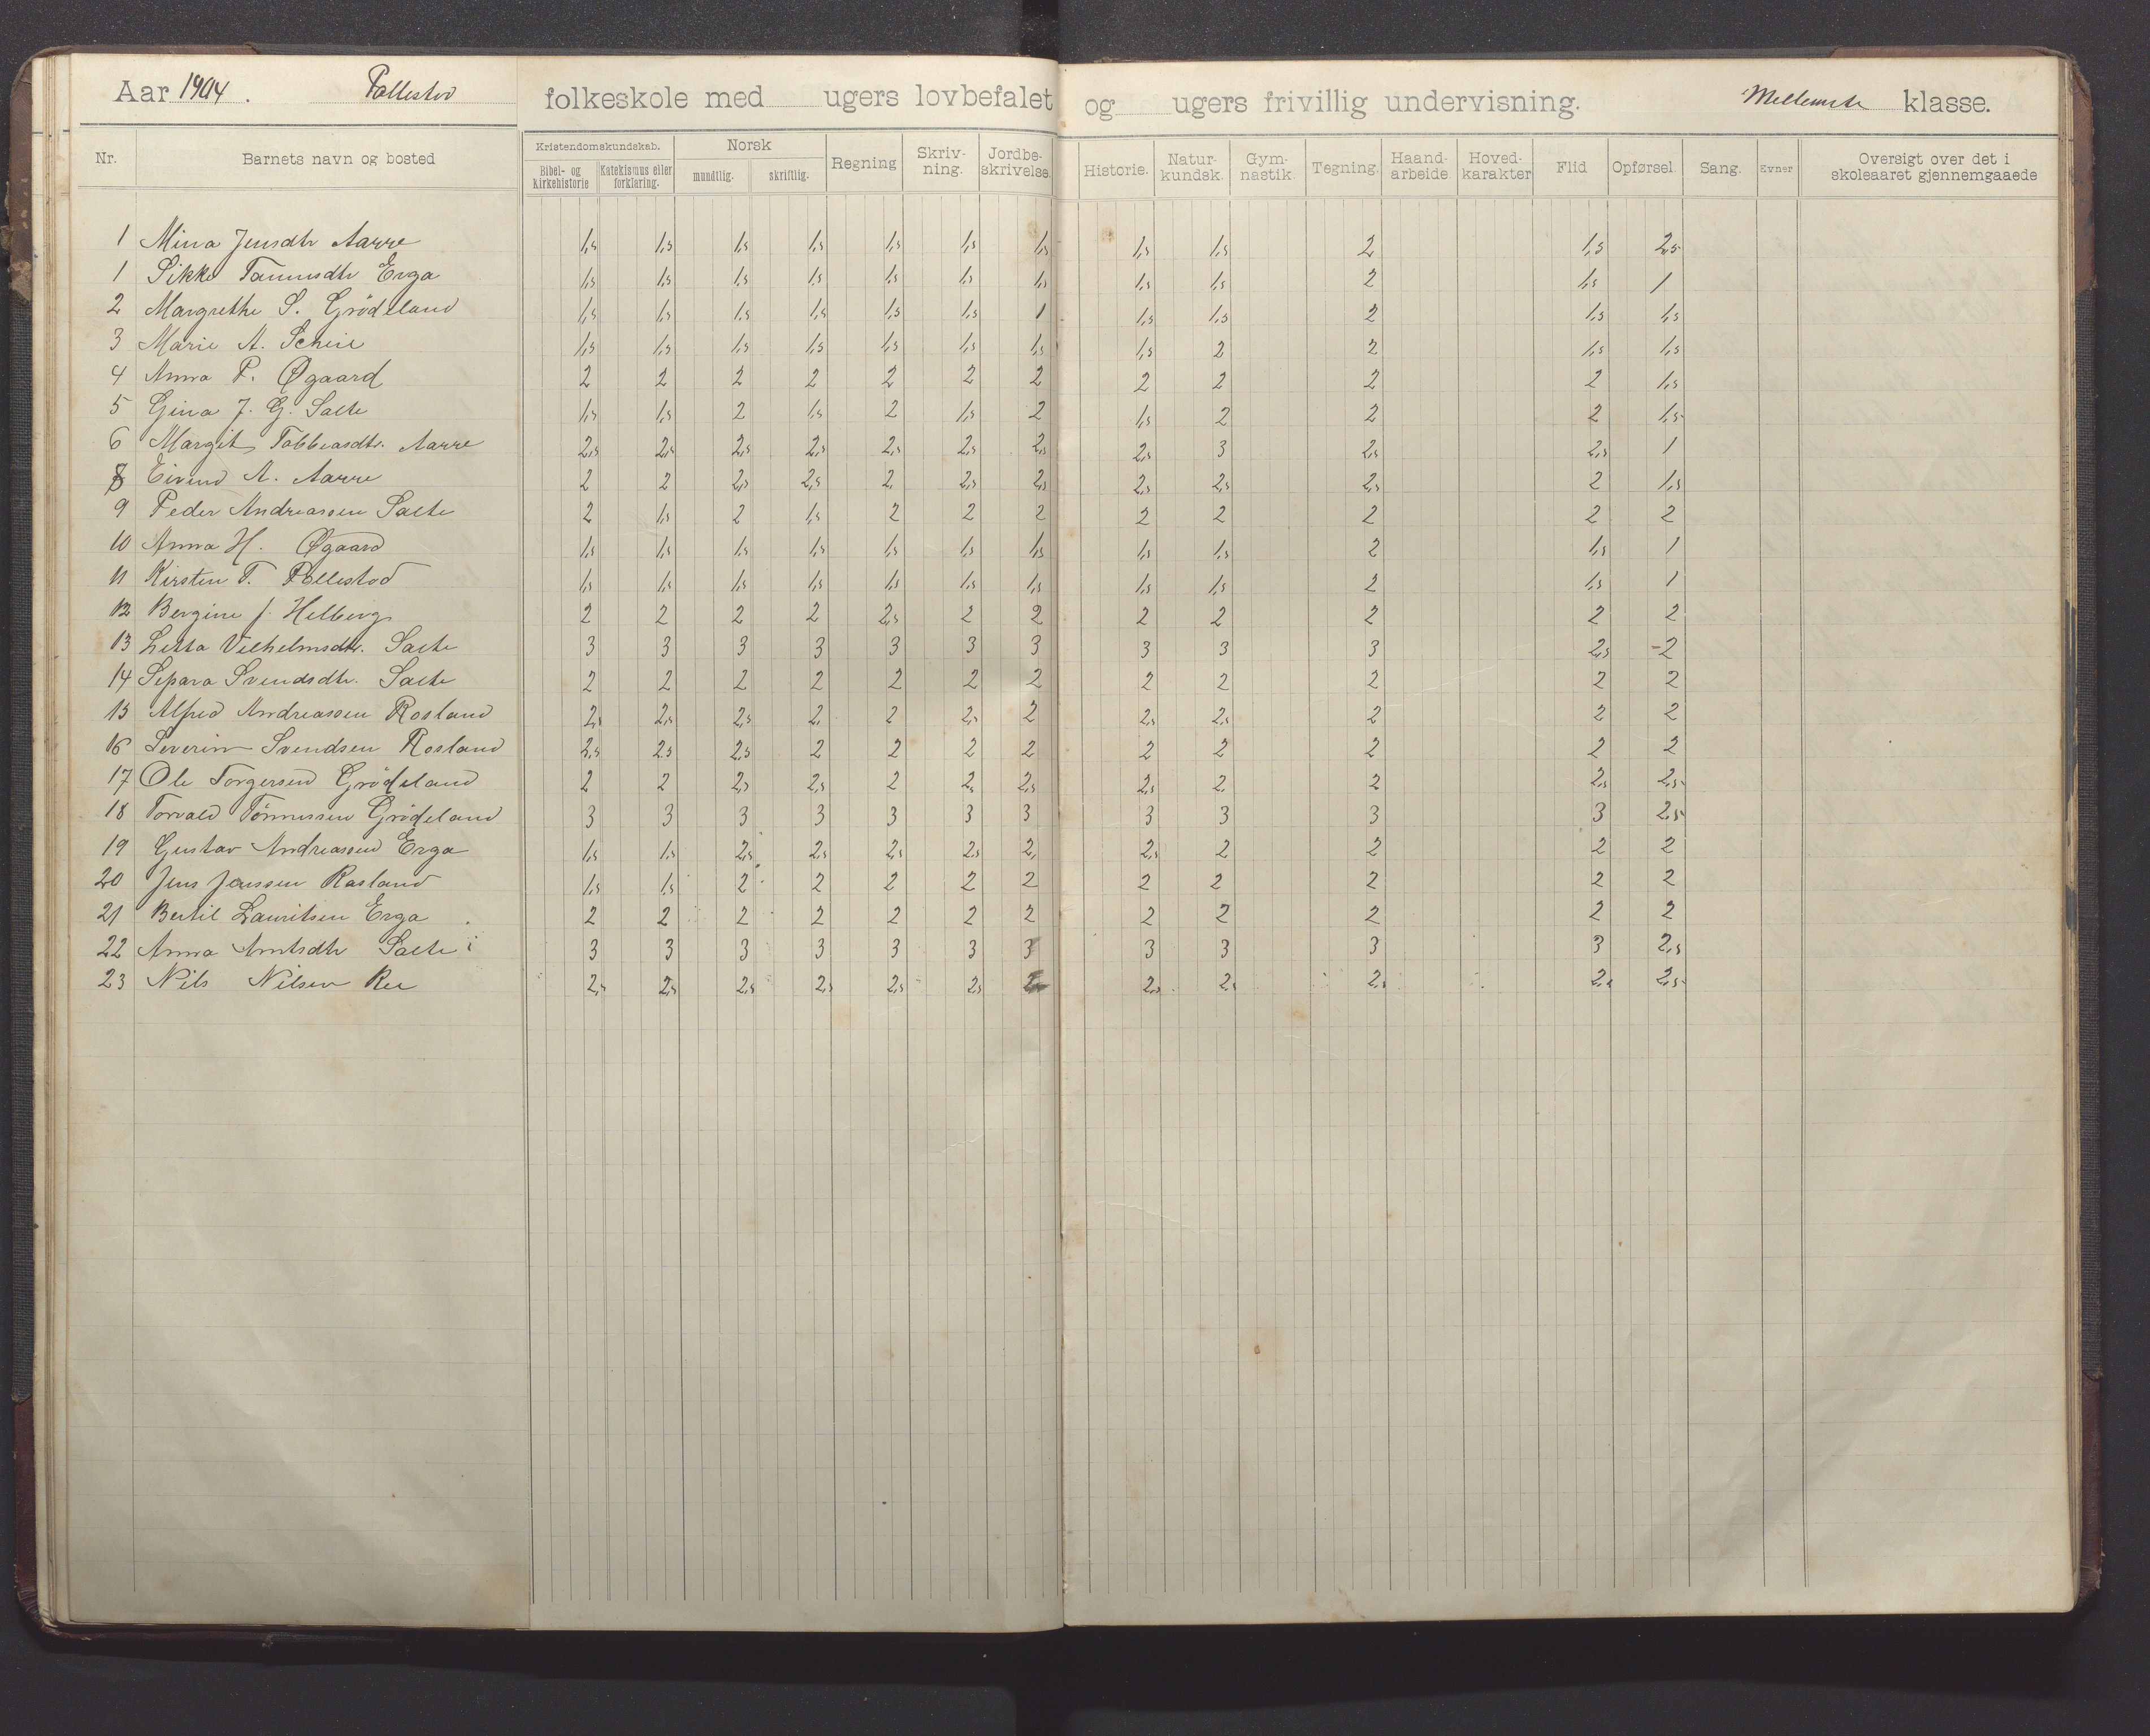 Aar 1904. Pollestad folkeskole med ugers lovbefalet og ugers frivillig undervisning. Mellemste klasse.
Nr. Barnets navn og bosted Kristendomskundskab. Bibel- og kirkehistorie Katekismus eller forklaring. Norsk mundtlig. skriftlig. Regning Skriv-ning. Jordbe-skrivelse. Historie. Natur-kundsk. Gym-nastik Tegning. Haand-arbeide Hoved-karakter Flid Opførsel. Sang. Evner Oversigt over det i skoleaaret gjennemgaaede
1 Mina Jensdtr Aarre 1,5 1,5 1,5 1,5 1,5 1,5 1,5 1,5 1,5 2 1,5 2,5
1 Sikke Tønnesdtr Erga 1,5 1,5 1,5 1,5 1,5 1,5 1,5 1,5 1,5 2 1,5 1
2 Margrethe S. Grödeland 1,5 1,5 1,5 1,5 1,5 1,5 1 1,5 1,5 2 1,5 1,5
3 Marie A. Scheie 1,5 1,5 1,5 1,5 1,5 1,5 1,5 1,5 2 2 1,5 1,5
4 Anna P. Øgaard 2 2 2 2 2 2 2 2 2 2 2 1,5
5 Gina J. G. Salte 1,5 1,5 2 1,5 2 1,5 2 1,5 2 2 2 1,5
6 Margit Tobbiasdtr. Aarre 2,5 2,5 2,5 2,5 2,5 2,5 2,5 2,5 3 2,5 2,5 1
8 Eivind A. Aarre 2 2 2,5 2,5 2, 2,5 2,5 2,5 2,5 2,5 2 1,5
9 Peder Andreassen Salte 2 1,5 2 1,5 2 2 2 2 2 2 2 2
10 Anna H. Øgaard 1,5 1,5 1,5 1,5 1,5 1,5 1,5 1,5 1,5 2 1,5 1
11 Kirsten T. Pollestad 1,5 1,5 1,5 1,5 1,5 1,5 1,5 1,5 1,5 2 1,5 1
12 Bergine J. Helberg 2 2 2 2 2,5 2 2 2 2 2 2 2
13 Letta Vilhelmsdtr. Salte 3 3 3 3 3 3 3 3 3 3 2,5 -2
14 Separa Svendsdtr. Salte 2 2 2 2 2 2 2 2 2 2 2 2
15 Alfred Andreassen Rosland 2,5 2,5 2,5 2, 2 2,5 2 2,5 2,5 2 2 2
16 Severin Svendsen Rosland 2,5 2,5 2,5 2 2 2 2 2 2 2 2 2
17 Ole Torgersen Grödeland 2 2 2,5 2,5 2 2,5 2,5 2,5 2, 2 2,5 2,5
18 Torvald Tönnessen Grödeland 3 3 3 3 3 3 3 3 3 3 3 2,5
19 Gustav Andreassen Erga 1,5 1,5 2,5 2,5 2,5 2,5 2, 2,5 2 2 2 2
20 Jens Jenssen Rasland 1,5 1,5 2 2 2 2 2 2 2 2 2 2
21 Bertil Lauritsen Erga 2 2 2 2 2 2 2 2 2 2 2 2
22 Anna Arntsdtr Salte 3 3 3 3 3 3 3 3 3 3 3 2,5
23 Nils Nilsen Ree 2,5 2,5 2,5 2,5 2,5 2,5 2 2,5 2,5 2,5 2,5 2,5